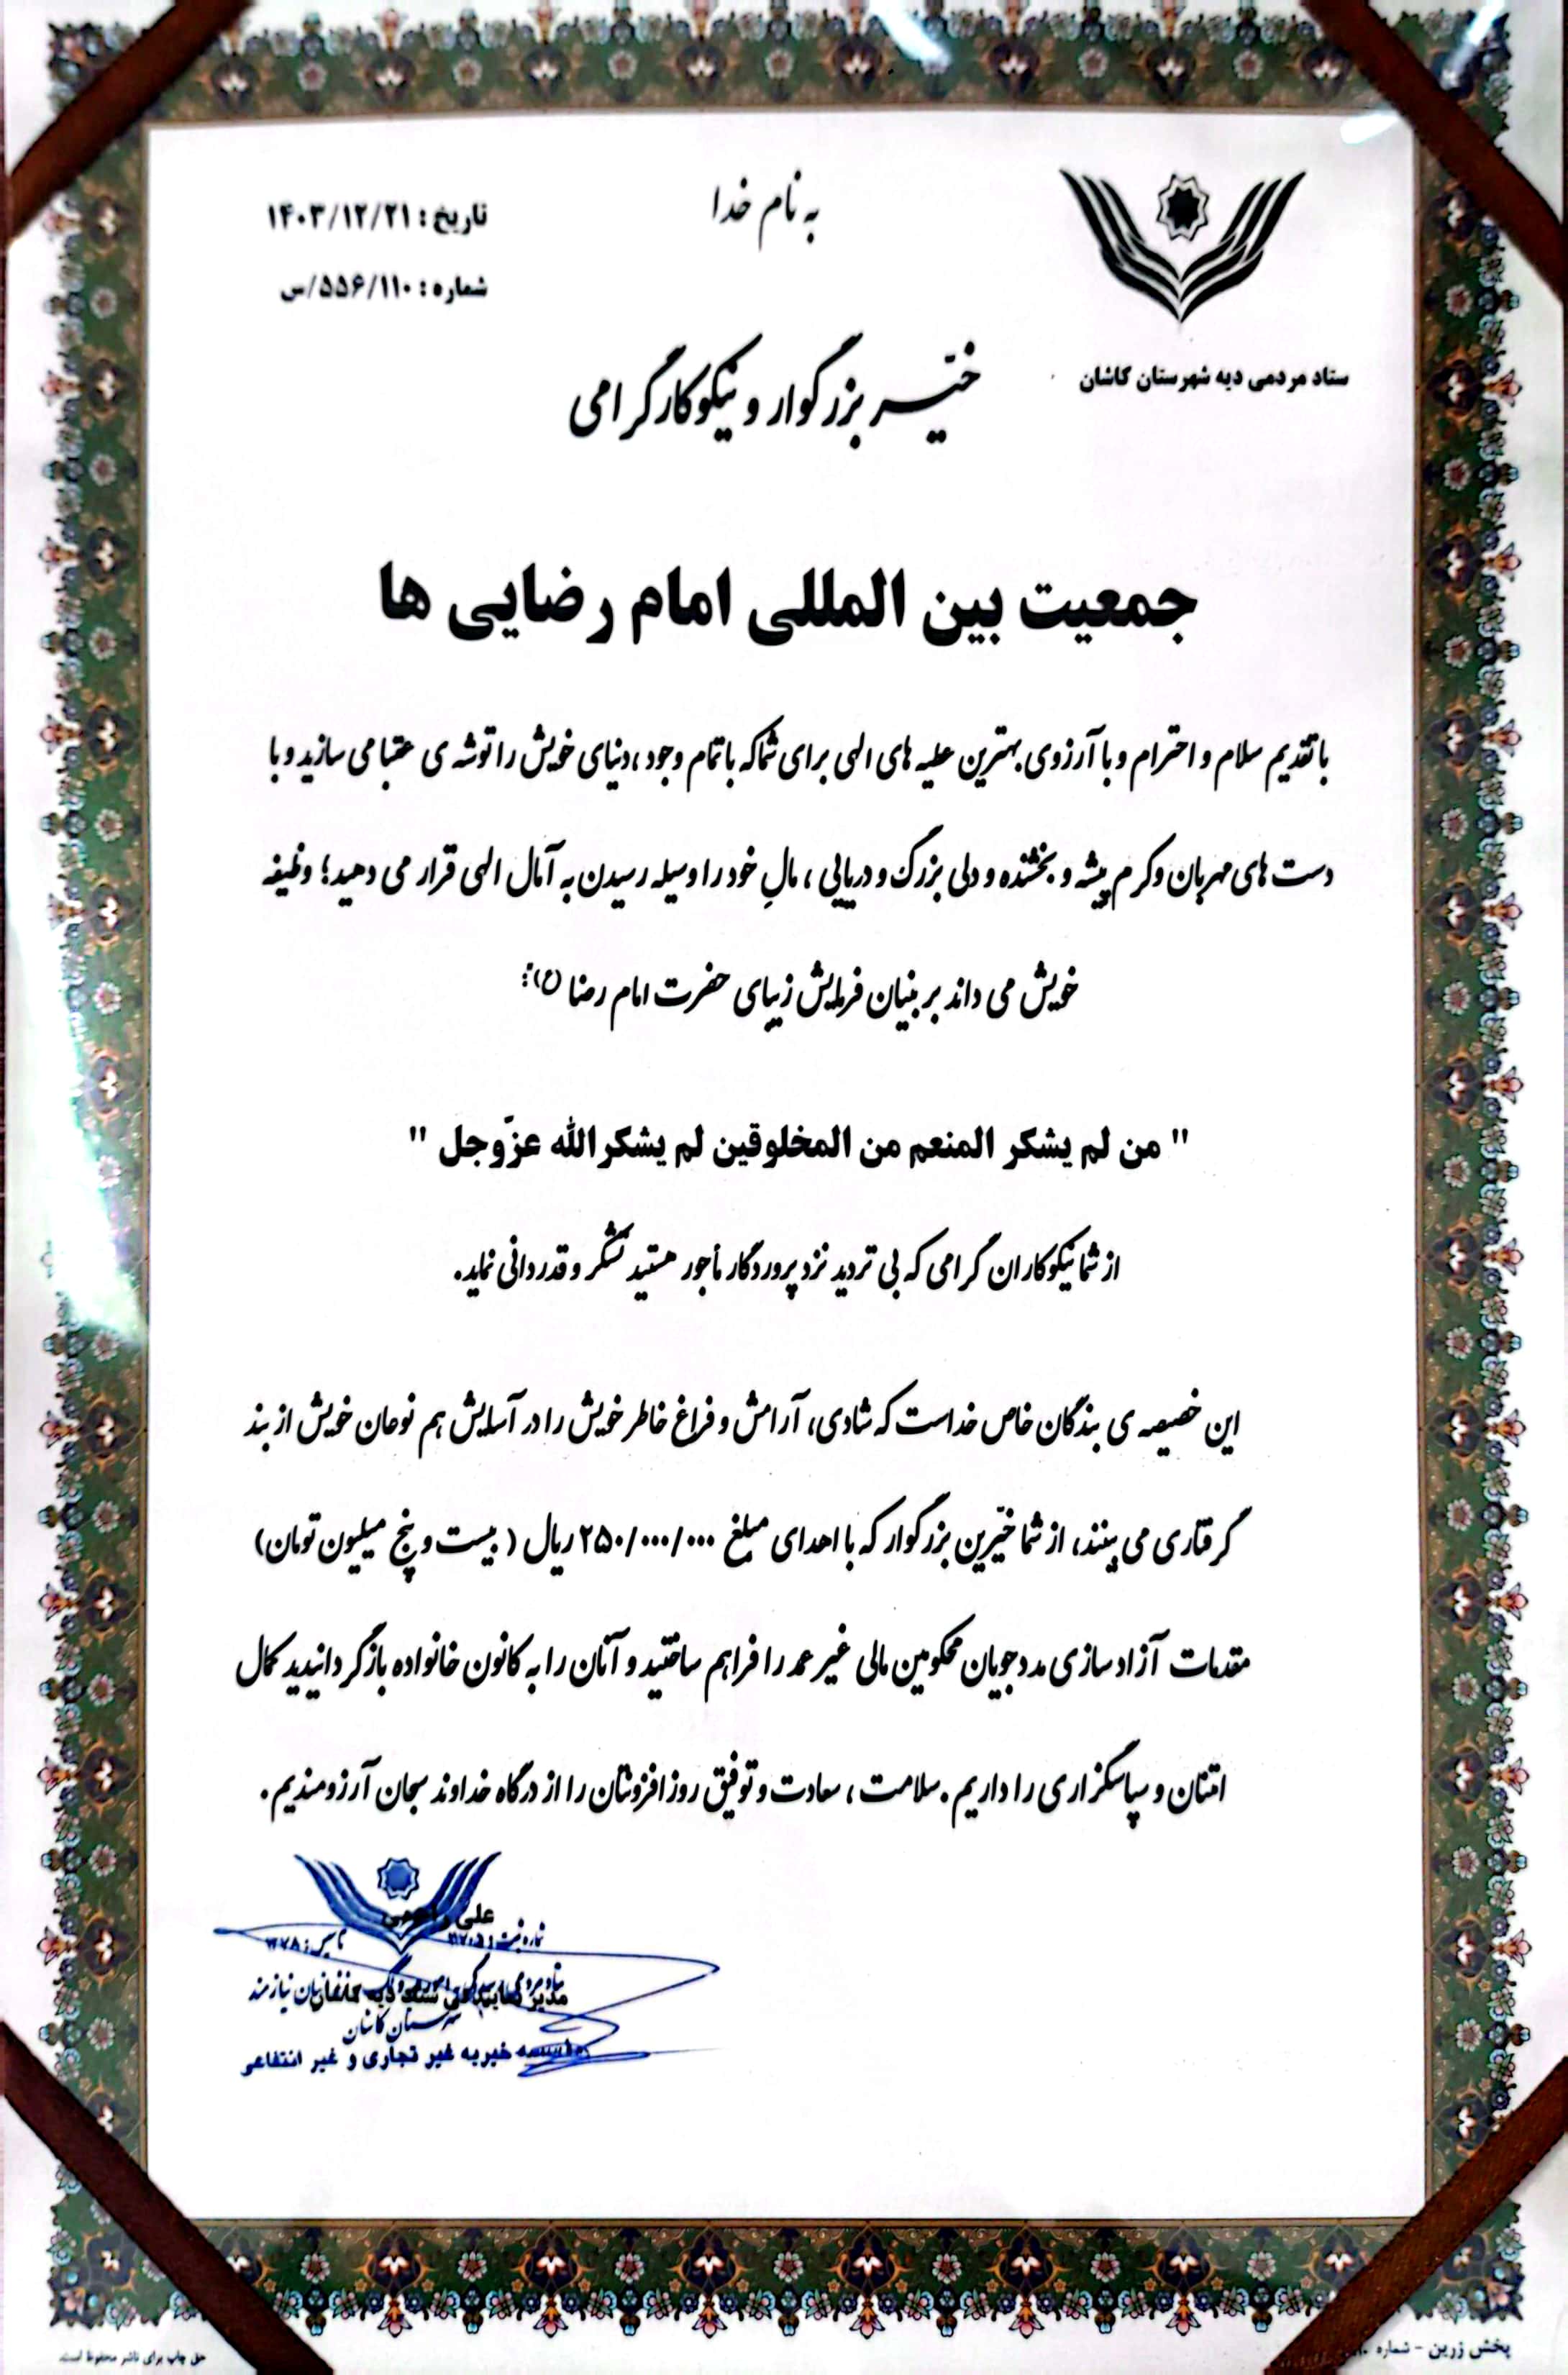 به نام خدا
تاریخ : ۱۴۰۳/۱۲/۲۱
شماره : ۵۵۶/۱۱۰/س
ستاد مردمی دیه شهرستان کاشان
خیّر بزرگوار و نیکوکار گرامی
جمعیت بین المللی امام رضایی ها
با تقدیم سلام و احترام و با آرزوی بهترین علیه های الهی برای شما که با تمام وجود ، دنیای خویش را توشه ی عقبا می سازید و با
دست های مهربان و کرم پیشه و بخشنده و دلی بزرگ و دریایی ، مالِ خود را وسیله رسیدن به آمال الهی قرار می دهید ؛ وظیفه
خویش می داند بر بنیان فرمایش زیبای حضرت امام رضا (ع) :
" من لم یشکر المنعم من المخلوقین لم یشکرالله عزّوجل "
از شما نیکوکاران گرامی که بی تردید نزد پروردگار مأجور هستید تشکر و قدردانی نماید .
این خصیصه ی بندگان خاص خداست که شادی ، آرامش و فراغ خاطر خویش را در آسایش هم نوعان خویش از بند
گرفتاری می بینند ، از شما خیّرین بزرگوار که با اهدای مبلغ ۲۵۰/۰۰۰/۰۰۰ ریال ( بیست و پنج میلیون تومان )
مقدمات آزاد سازی مددجویان محکومین مالی غیر عمد را فراهم ساختید و آنان را به کانون خانواده بازگردانیدید کمال
امتنان و سپاسگزاری را داریم . سلامت ، سعادت و توفیق روزافزونتان را از درگاه خداوند سبحان آرزومندیم .
علی
شماره ثبت : تاسیس : ۱۳۷۸
مدیر نمایندگی ستاد دیه
نیازمند
شهرستان کاشان
موسسه خیریه غیر تجاری و غیر انتفاعی
پخش زرین - شماره
حق چاپ برای ناشر محفوظ است.